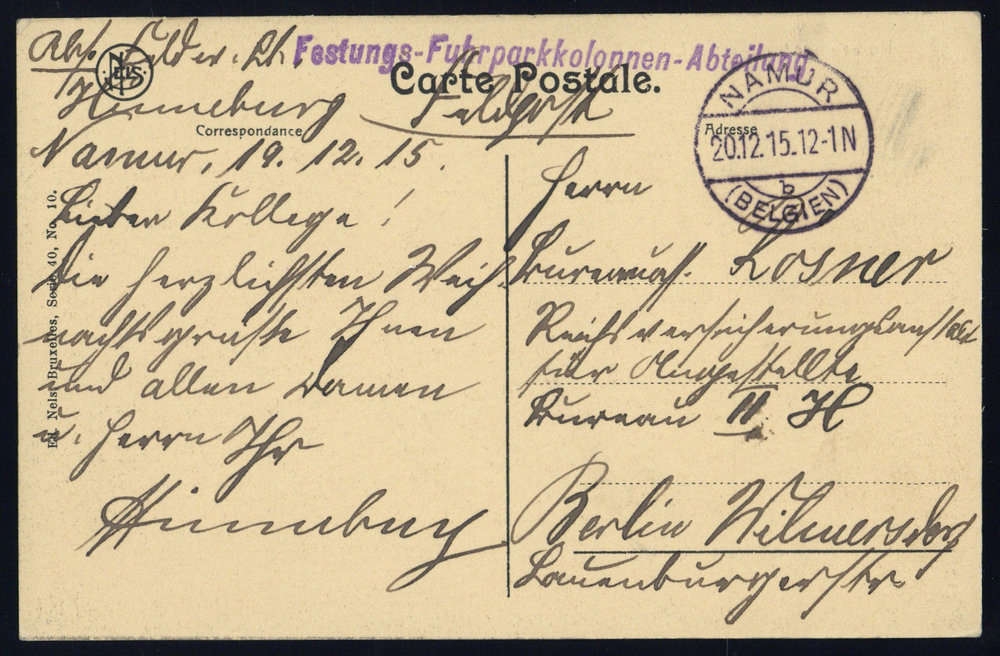 Abs. Feldw. Lt. Festungs-Fuhrparkkolonnen-Abteilung
NELS
Carte Postale.
Feldpost
Correspondance
Adresse
NAMUR
20.12.15.12-1N
b
(BELGIEN)
Namur, 19. 12. 15.
Lieber Kollege!
Die herzlichsten Weih-
nachtsgrüße Ihnen
und allen Damen
u. Herrn Ihr
Ed. Nels, Bruxelles, Serie 40, No. 10.
Herrn
Bureauass. Kosner
Reichsversicherungsanstalt
für Angestellte
Bureau II H
Berlin Wilmersdorf
Lauenburgerstr.